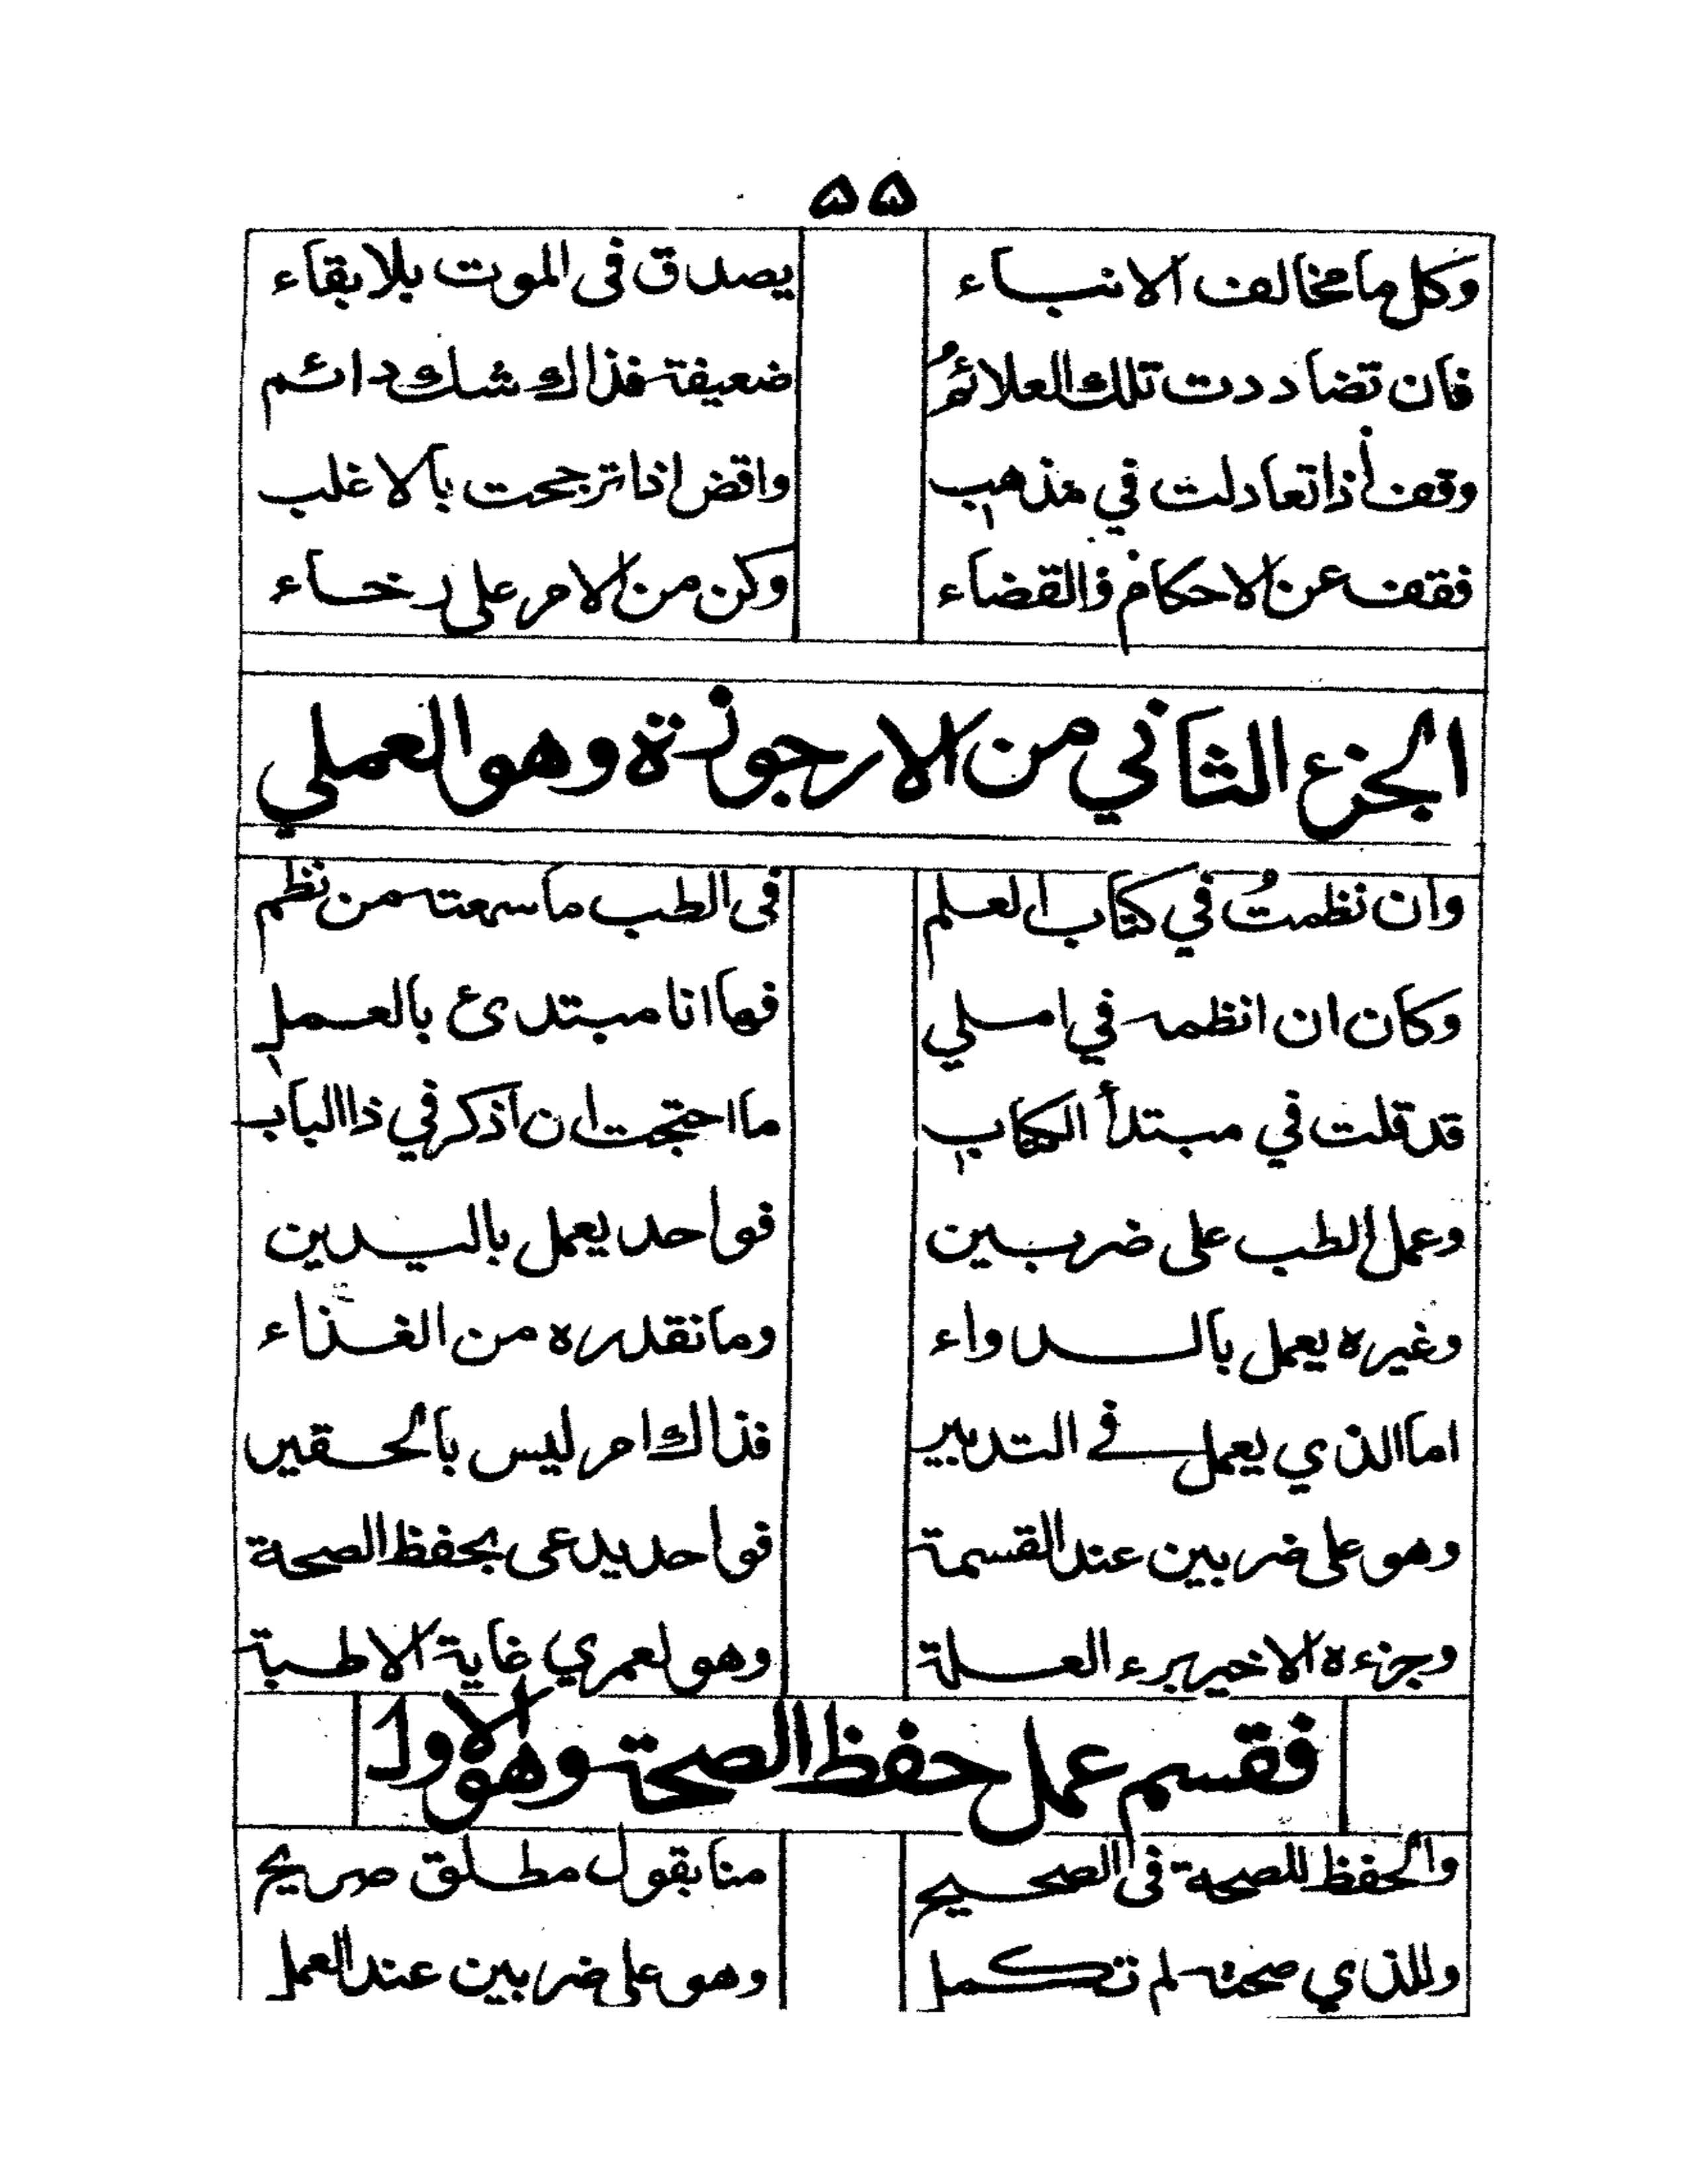 ۵۵
وكل ما يخالف الانبساء يصدق فى الموت بلا بقاء
فان تضاددت تلك العلائمُ ضعيفة فذاك شك دائم
وقف أذا تعادلت في مذهب واقض اذا ترجحت بالاغلب
فقف عن الاحكام والقضاء وكن من الامر على رخاء
الجزء الثاني من الارجوزة وهو العملي
وان نظمتُ في كتاب العلم فى الطب ما سمعته من نظم
وكان ان انظمه في املي فها انا مبتدئ بالعمل
قد قلت في مبتدأ الكتاب ما احتجت ان اذكر في ذا الباب
وعمل الطب على ضربين فواحد يعمل باليدين
وغيره يعمل بالدواء وما نقدره من الغذاء
اما الذي يعمل في التدبير فذاك امر ليس بالحقير
وهو على ضربين عند القسمة فواحد يدعى بحفظ الصحة
وجزءه الاخير برء العلة وهو لعمري غاية الاطبة
فقسم عمل حفظ الصحة وهو الاول
والحفظ للصحة فى الصحيح منا بقول مطلق صريح
وللذي صحته لم تكمل وهو على ضربين عند العمل